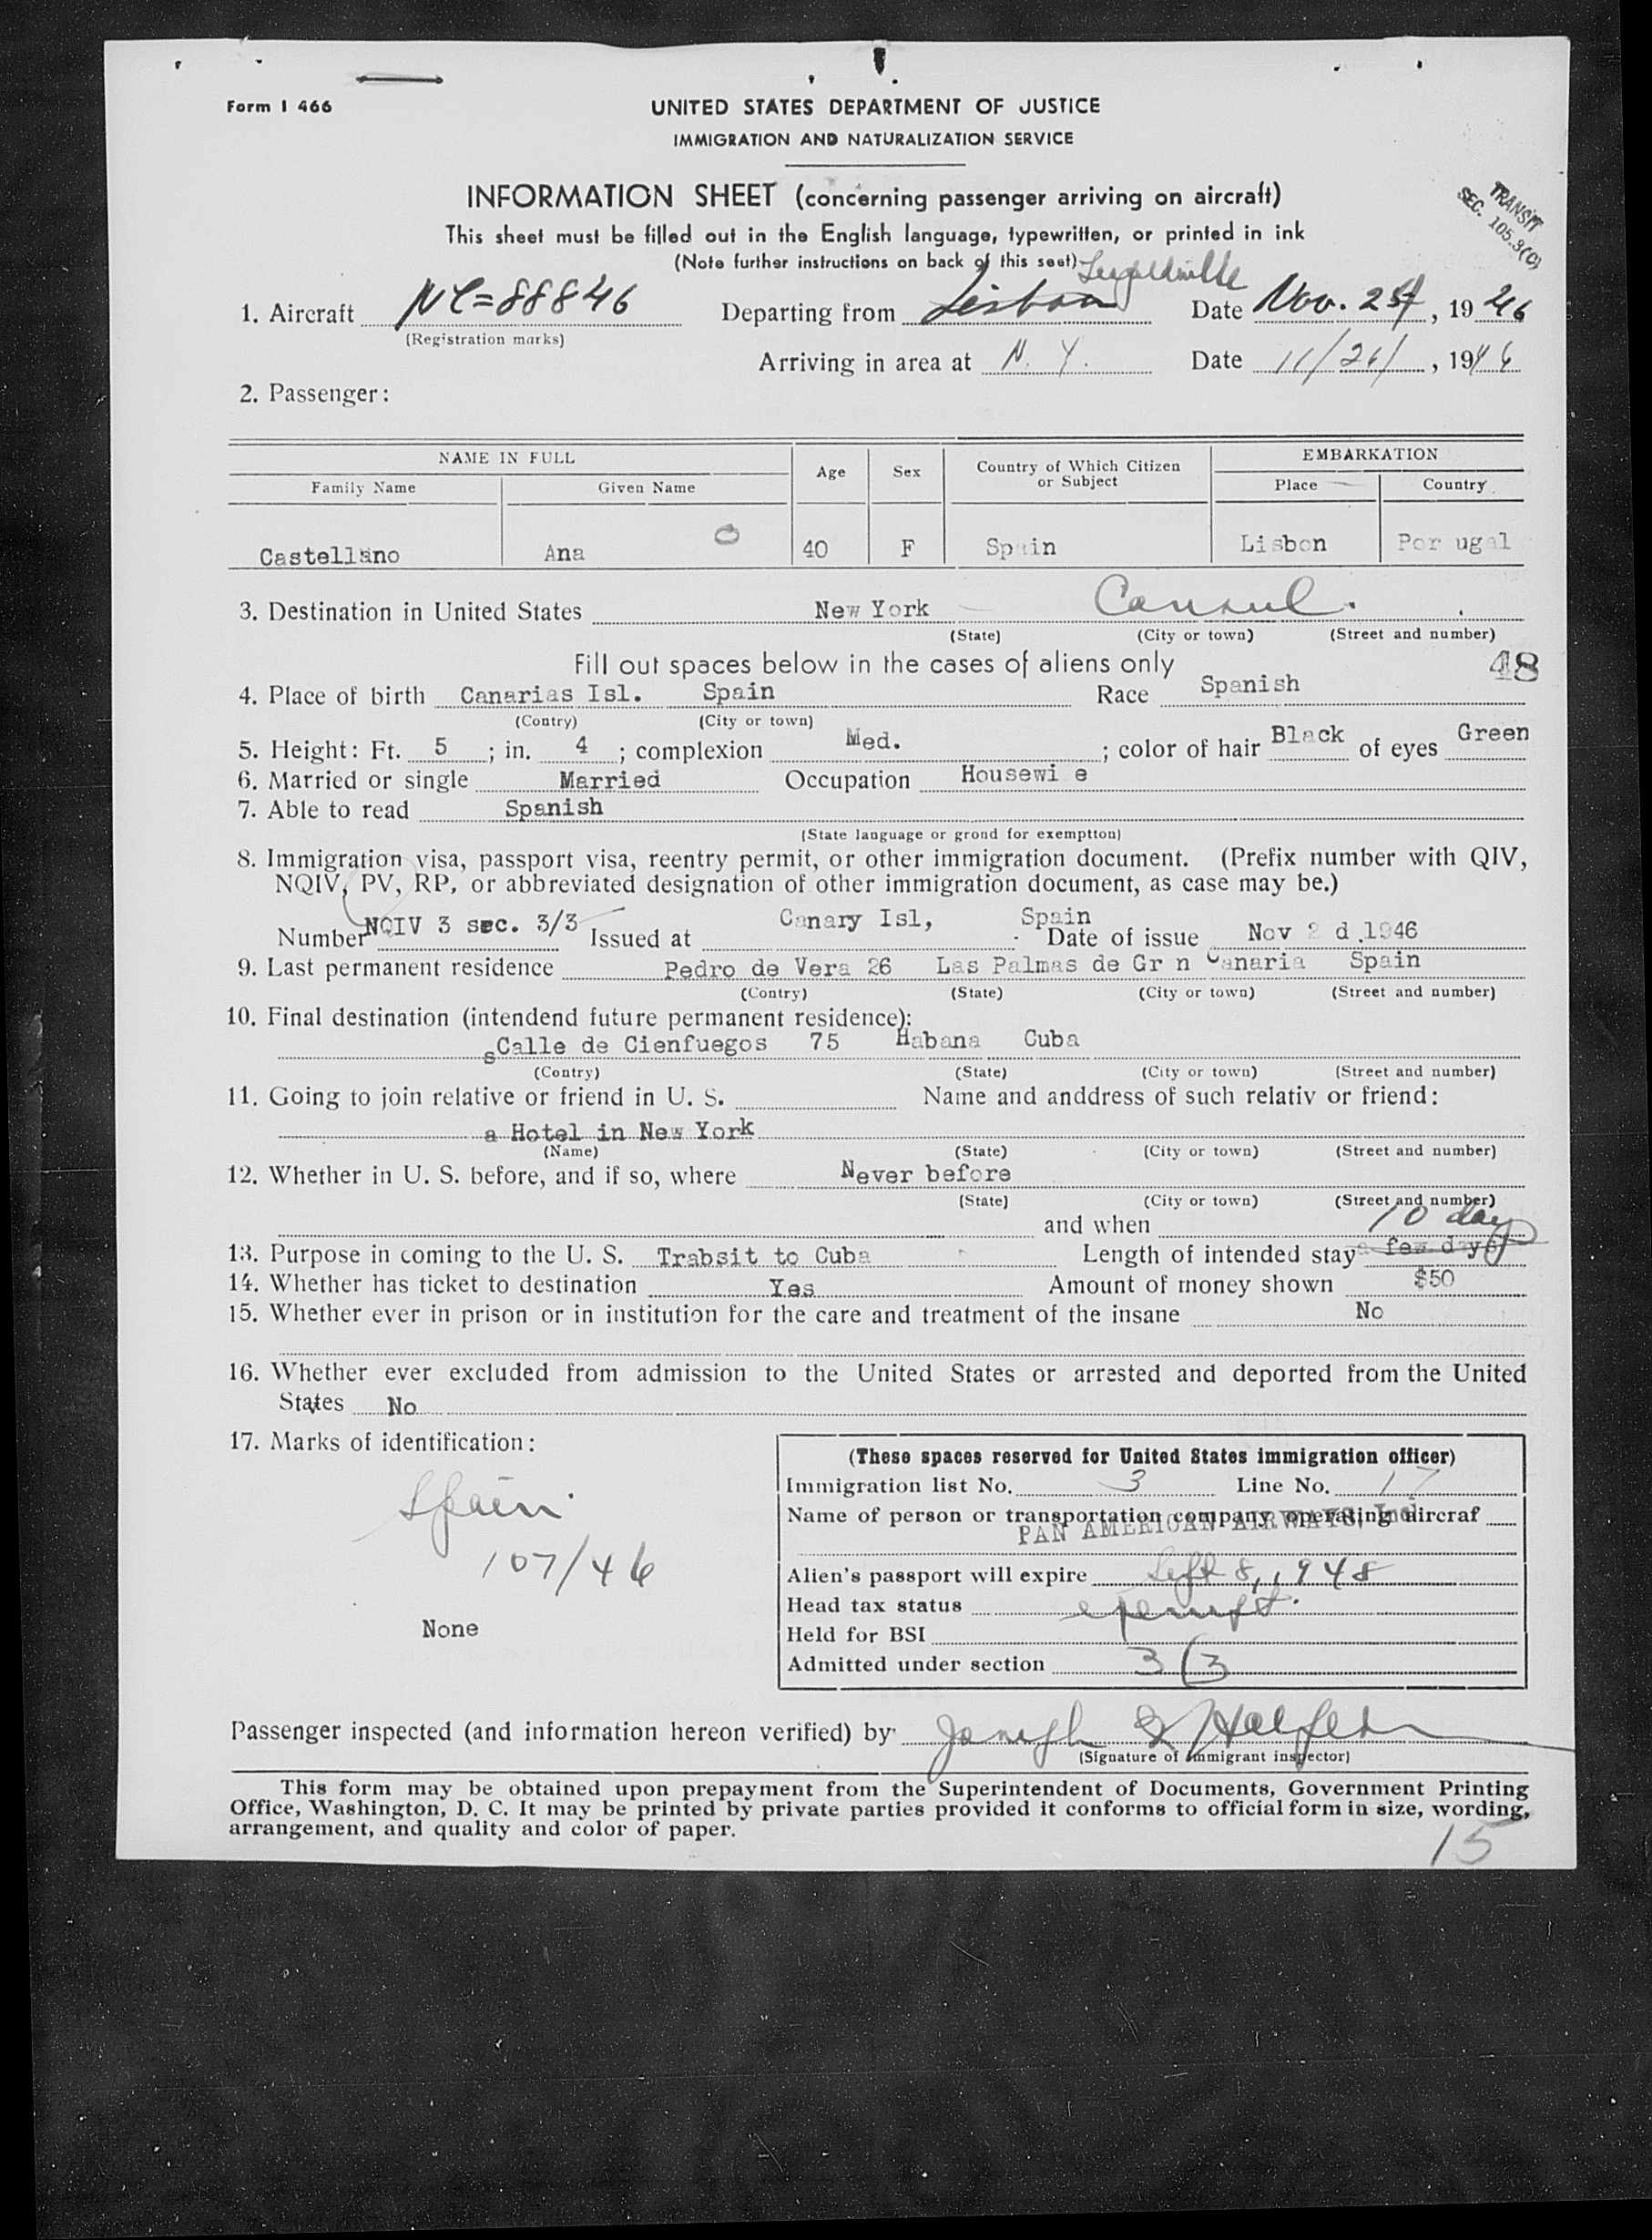 Form I 466
UNITED STATES DEPARTMENT OF JUSTICE
IMMIGRATION AND NATURALIZATION SERVICE
INFORMATION SHEET (concerning passenger arriving on aircraft)
TRANSIT
SEC. 105.3(C)
This sheet must be filled out in the English language, typewritten, or printed in ink
(Note further instructions on back of this seet) Leopoldville
1. Aircraft NC=88846 Departing from Lisbon Date Nov. 25, 1946
(Registration marks)
Arriving in area at N. Y. Date 11/26/, 1946
2. Passenger:
NAME IN FULL Age Sex Country of Which Citizen or Subject EMBARKATION
Family Name Given Name Place Country
Castellano Ana 40 F Spain Lisbon Por ugal
3. Destination in United States New York Consul.
(State) (City or town) (Street and number)
Fill out spaces below in the cases of aliens only 48
4. Place of birth Canarias Isl. Spain Race Spanish
(Contry) (City or town)
5. Height: Ft. 5 ; in. 4 ; complexion Med. ; color of hair Black of eyes Green
6. Married or single Married Occupation Housewi e
7. Able to read Spanish
(State language or grond for exemptton)
8. Immigration visa, passport visa, reentry permit, or other immigration document. (Prefix number with QIV,
NQIV, PV, RP, or abbreviated designation of other immigration document, as case may be.)
Number NQIV 3 sec. 3/3 Issued at Canary Isl, Spain Date of issue Nov 2 d .1946
9. Last permanent residence Pedro de Vera 26 Las Palmas de Gr n Canaria Spain
(Contry) (State) (City or town) (Street and number)
10. Final destination (intendend future permanent residence):
sCalle de Cienfuegos 75 Habana Cuba
(Contry) (State) (City or town) (Street and number)
11. Going to join relative or friend in U. S. Name and anddress of such relativ or friend:
a Hotel in New York
(Name) (State) (City or town) (Street and number)
12. Whether in U. S. before, and if so, where Never before
(State) (City or town) (Street and number)
and when 10 days
13. Purpose in coming to the U. S. Trabsit to Cuba Length of intended stay a few days
14. Whether has ticket to destination Yes Amount of money shown $50
15. Whether ever in prison or in institution for the care and treatment of the insane No
16. Whether ever excluded from admission to the United States or arrested and deported from the United
States No
17. Marks of identification:
Spain
107/46
None
(These spaces reserved for United States immigration officer)
Immigration list No. 3 Line No. 17
Name of person or transportation company operating aircraf
PAN AMERICAN AIRWAYS, Inc.
Alien's passport will expire Sept 8, 1948
Head tax status exempt.
Held for BSI
Admitted under section 3(3
Passenger inspected (and information hereon verified) by
(Signature of immigrant inspector)
This form may be obtained upon prepayment from the Superintendent of Documents, Government Printing
Office, Washington, D. C. It may be printed by private parties provided it conforms to official form in size, wording,
arrangement, and quality and color of paper.
15